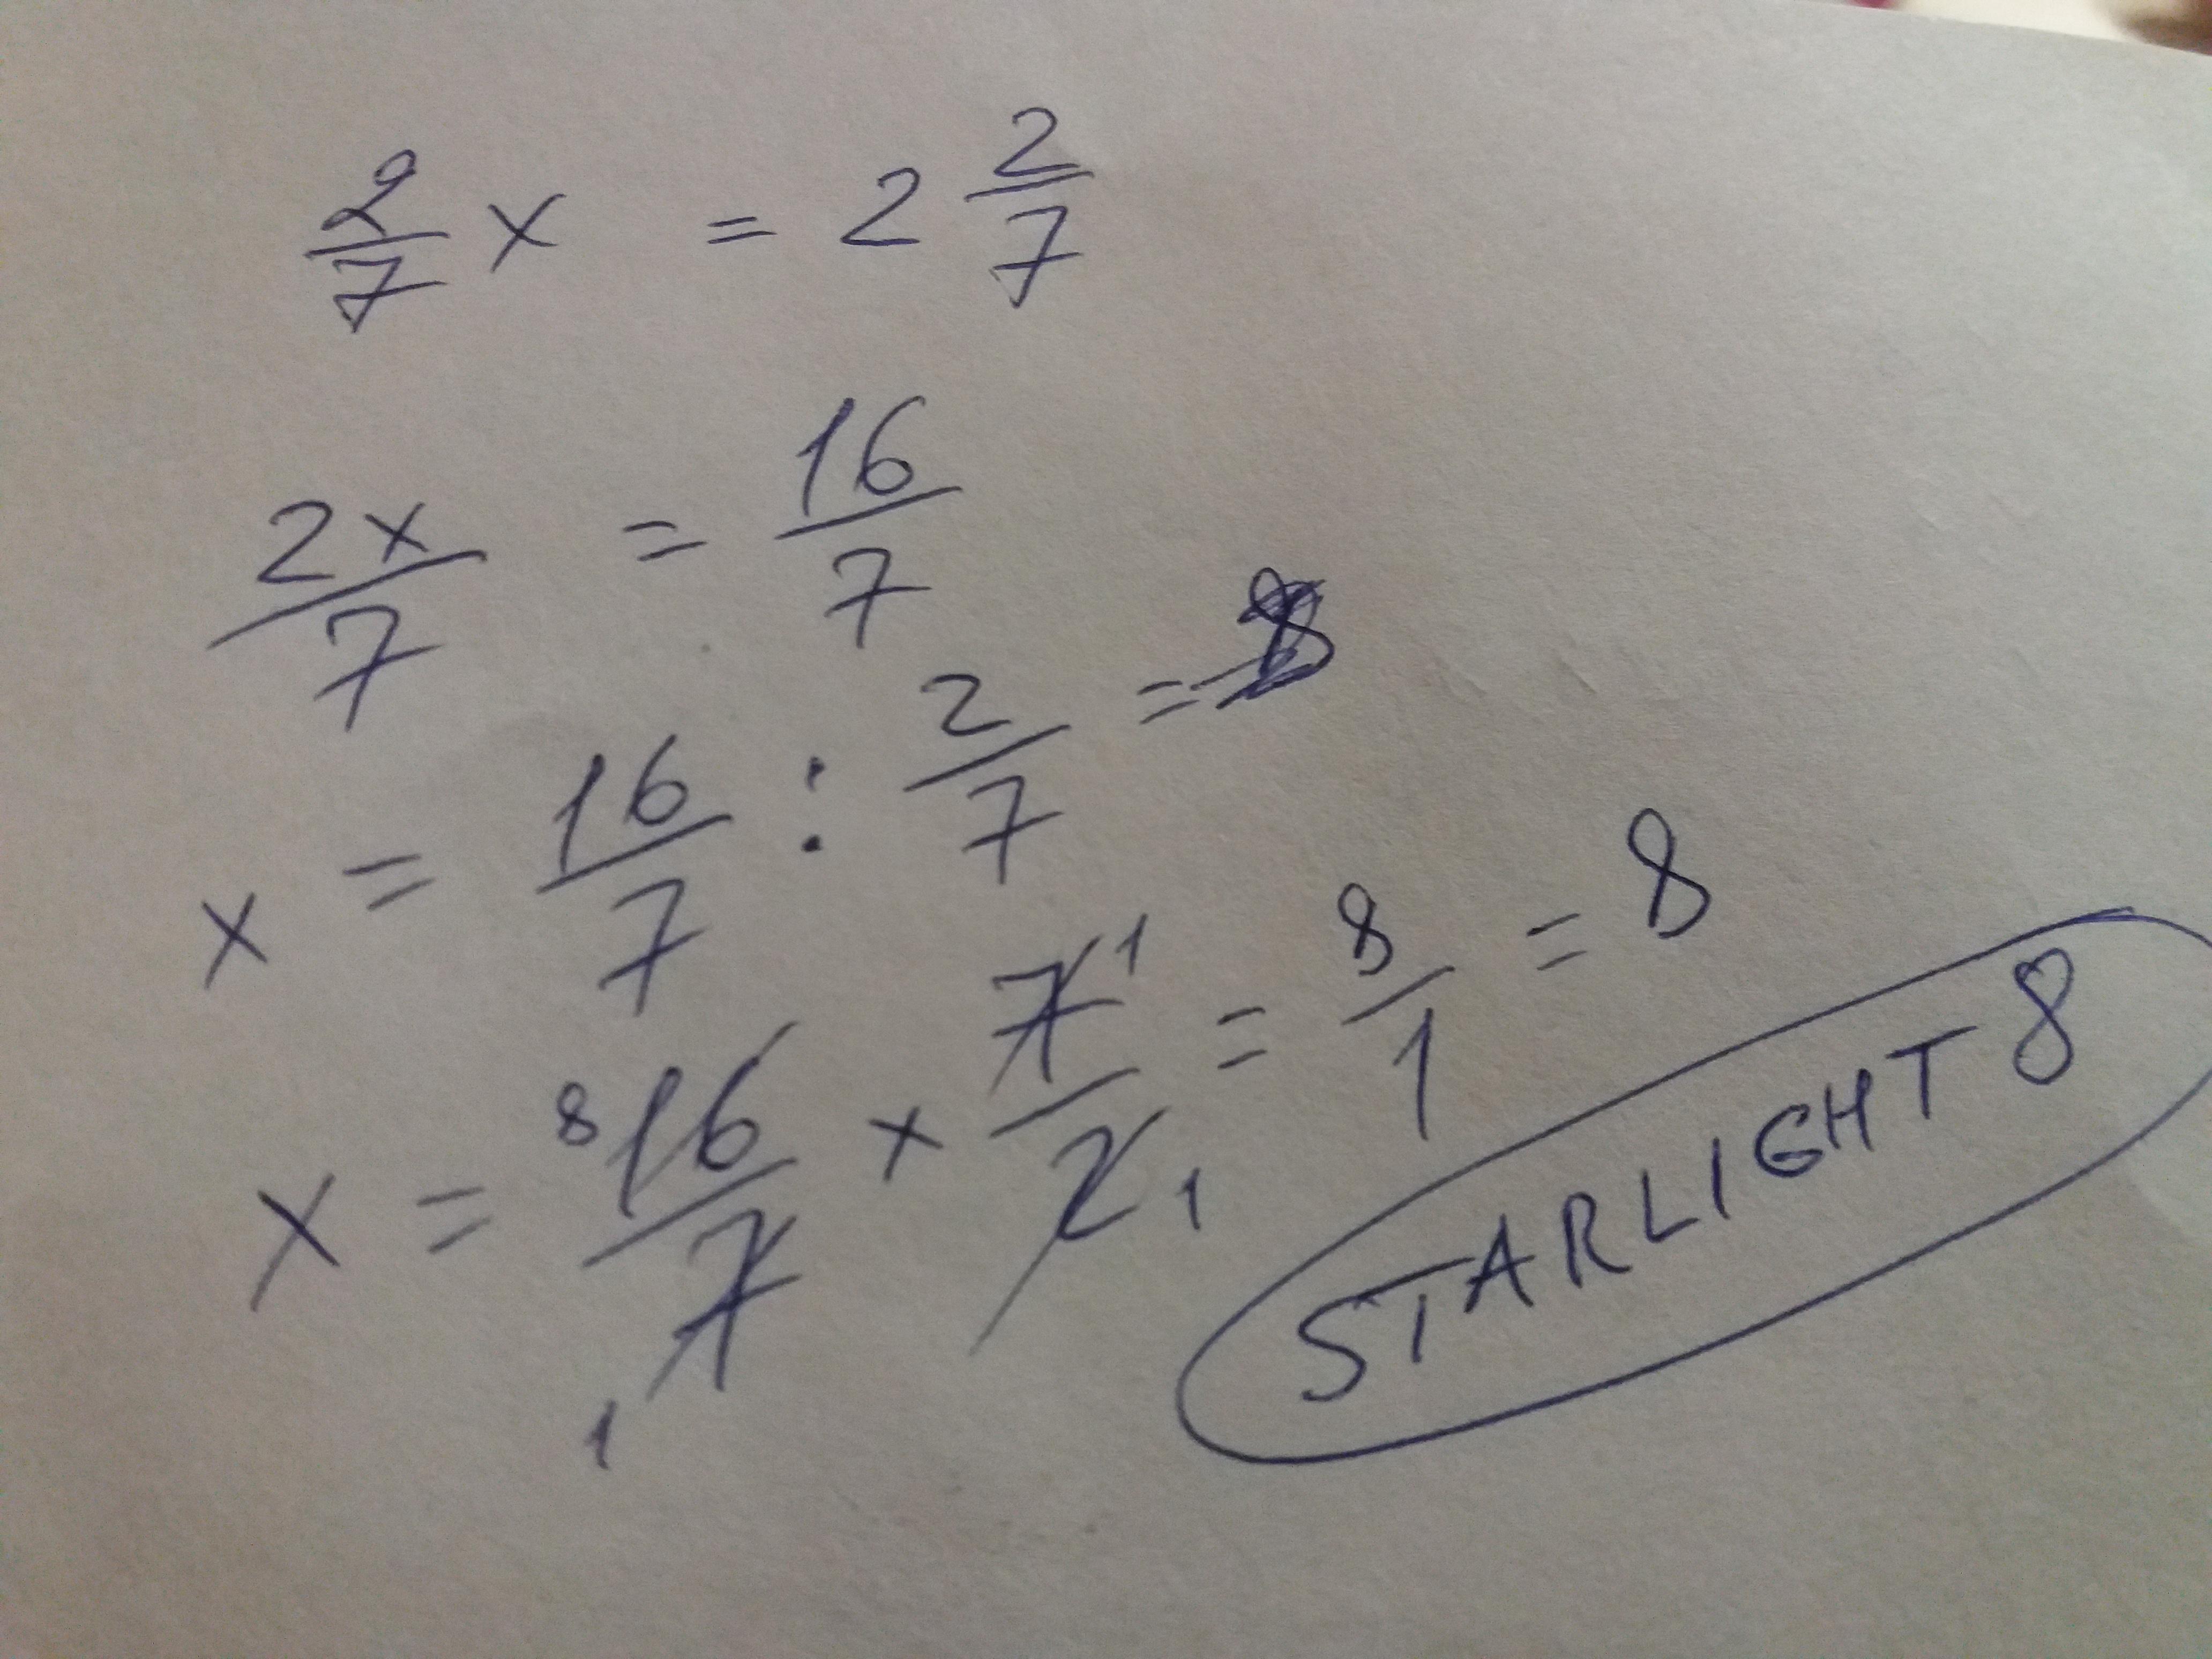 2/7 x = 2 2/7
2x/7 = 16/7
x = 16/7 : 2/7 = 8
x = 8 16/7 1 x 7 1/2 1 = 8/1 = 8
STARLIGHT 8